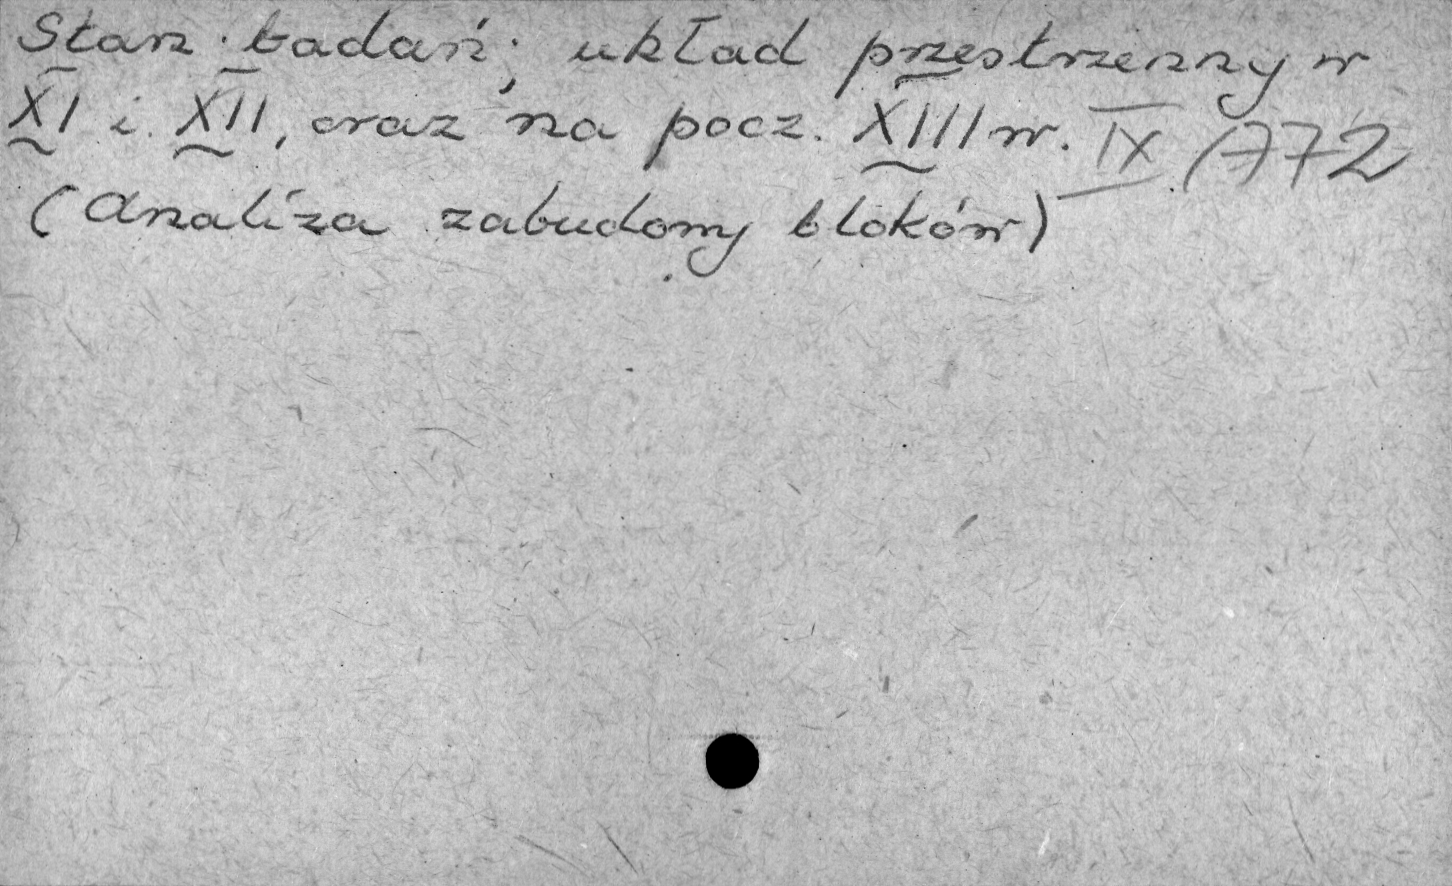 Stan badań; układ przestrzenny w
XI i XII, oraz na pocz. XIII w. IX/772
(Analiza zabudowy bloków)